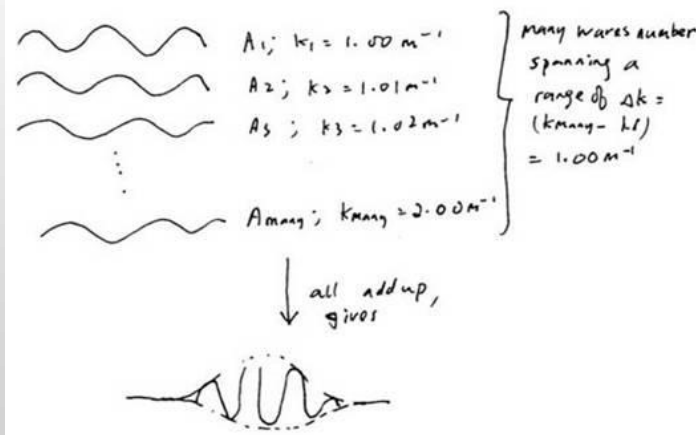 A1; k1 = 1.00 m⁻¹
A2; k2 = 1.01 m⁻¹
A3; k3 = 1.02 m⁻¹
Amany; kmany = 2.00 m⁻¹
many waves number
spanning a
range of Δk =
(kmany - k1)
= 1.00 m⁻¹
all add up,
gives